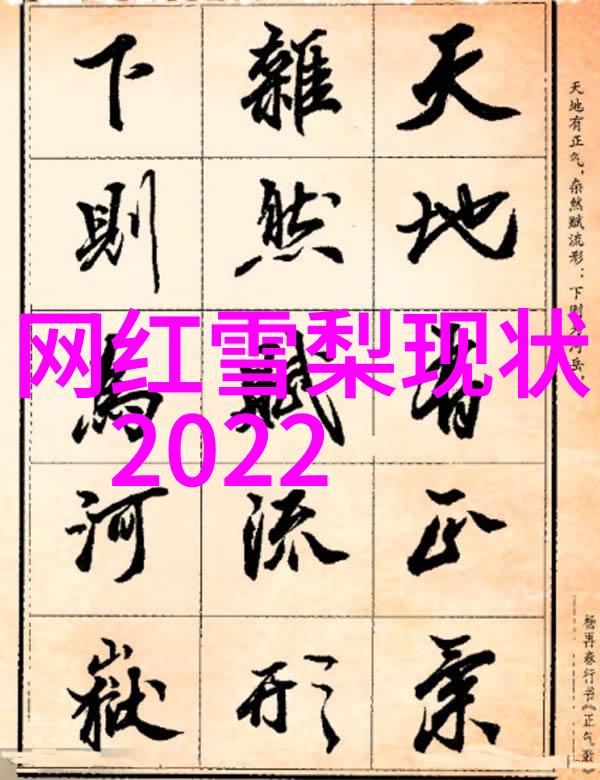 网红雪梨现状
2022
天地有正氣
雜然賦流形
下則為河嶽
天地有正气，杂然赋流形：下则为河岳，
杨再春行书《正气歌》